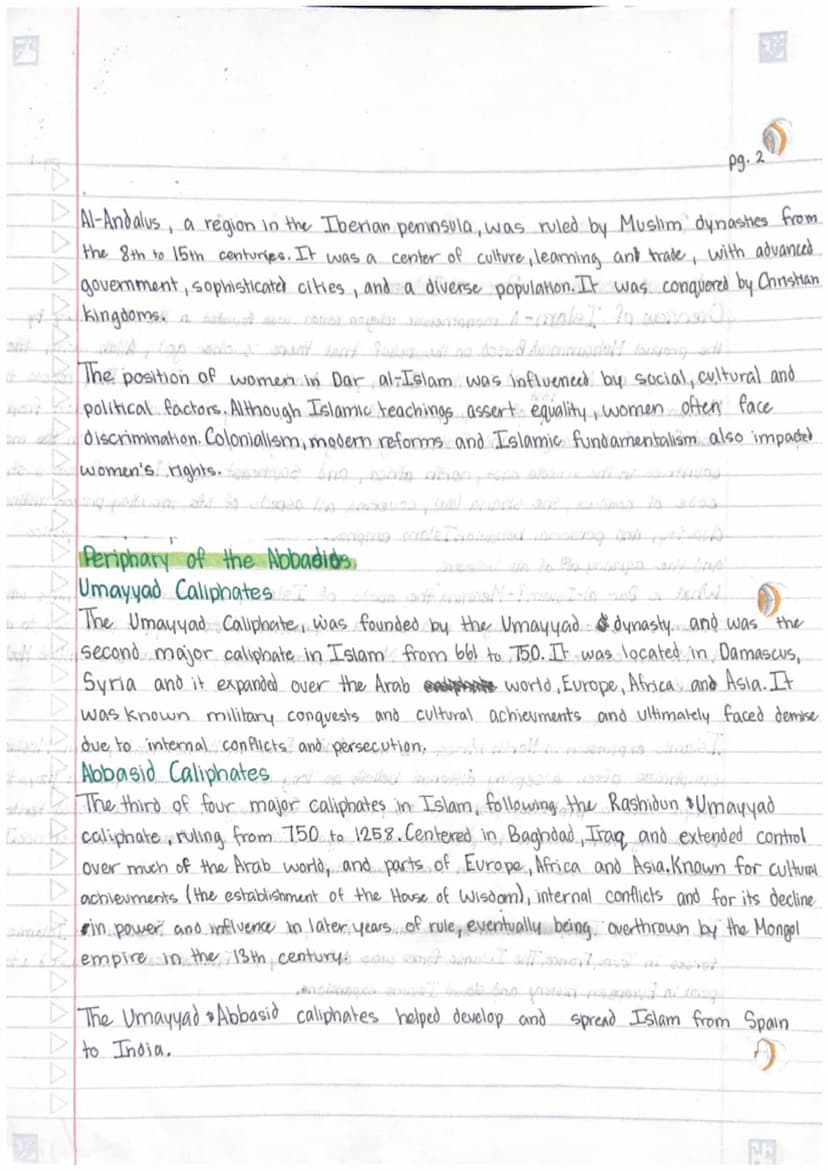 pg. 2
Al-Andalus, a region in the Iberian peninsula, was ruled by Muslim dynasties from
the 8th to 15th centuries. It was a center of culture, learning and trade, with advanced
government, sophisticated cities, and a diverse population. It was conquered by Christian
kingdoms.
The position of women in Dar al-Islam was influenced by social, cultural and
political factors. Although Islamic teachings assert equality, women often face
discrimination. Colonialism, modern reforms and Islamic fundamentalism also impacted
women's rights.
Periphary of the Abbadids
Umayyad Caliphates
The Umayyad Caliphate, was founded by the Umayyad dynasty and was the
second major caliphate in Islam from 661 to 750. It was located in Damascus,
Syria and it expanded over the Arab world, Europe, Africa and Asia. It
was known military conquests and cultural achievments and ultimately faced demise
due to internal conflicts and persecution.
Abbasid Caliphates
The third of four major caliphates in Islam, following the Rashidun & Umayyad
caliphate, ruling from 750 to 1258. Centered in Baghdad, Iraq and extended control
over much of the Arab world, and parts of Europe, Africa and Asia. Known for cultural
achievments (the establishment of the House of Wisdom), internal conflicts and for its decline
in power and influence in later years of rule, eventually being overthrown by the Mongol
empire in the 13th century.
The Umayyad & Abbasid caliphates helped develop and spread Islam from Spain
to India.